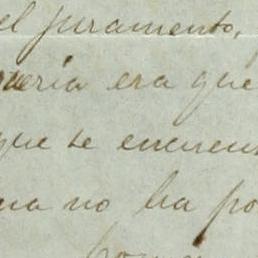 el juramento,
ueria era que
que se encuent
na no ha po